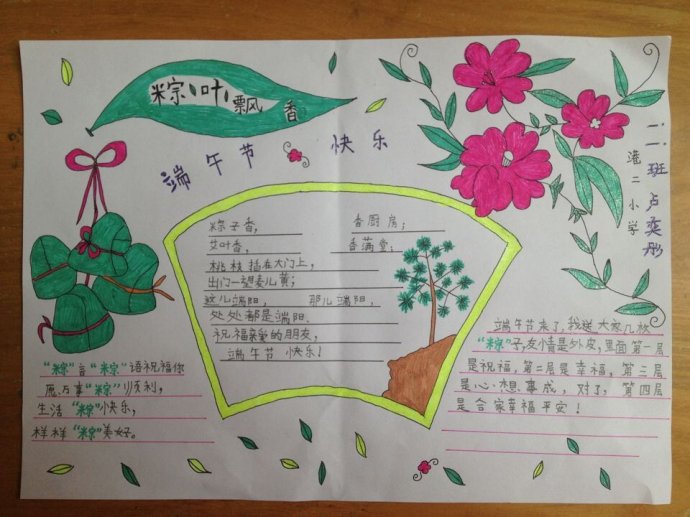 粽叶飘香
端午节 快乐
二·一班 卢奕彤
港二小学
粽子香， 香厨房；
艾叶香， 香满堂；
桃枝插在大门上，
出门一望麦儿黄；
这儿端阳， 那儿端阳，
处处都是端阳。
祝福亲爱的朋友，
端午节 快乐！
“粽”言“粽”语祝福你
愿万事“粽”顺利，
生活“粽”快乐，
样样“粽”美好。
端午节来了，我送大家几枚
“粽”子，友情是外皮，里面第一层
是祝福，第二层是幸福，第三层
是心想事成，对了，第四层
是合家幸福平安！